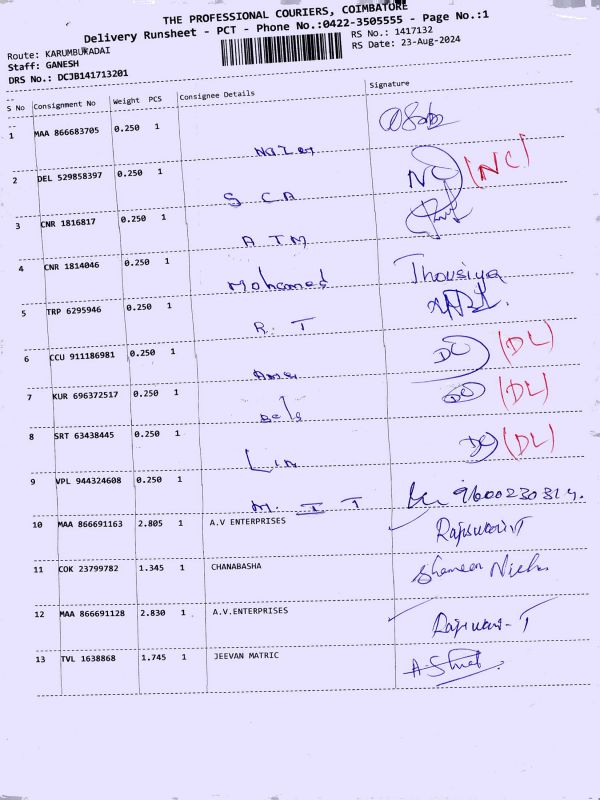 THE PROFESSIONAL COURIERS, COIMBATORE
Delivery Runsheet - PCT - Phone No.:0422-3505555 - Page No.:1
Route: KARUMBUKADAI
Staff: GANESH
DRS No.: DCJB141713201
RS No.: 1417132
RS Date: 23-Aug-2024
S No Consignment No Weight PCS Consignee Details Signature
1 MAA 866683705 0.250 1
2 DEL 529858397 0.250 1 NC (NC)
S C A
3 CNR 1816817 0.250 1
A T M
4 CNR 1814046 0.250 1 Mohamed Thousiya
5 TRP 6295946 0.250 1
R. T
6 CCU 911186981 0.250 1 (DL)
7 KUR 696372517 0.250 1 (DL)
8 SRT 63438445 0.250 1 (DL)
9 VPL 944324608 0.250 1 9600230314.
M. I T
10 MAA 866691163 2.805 1 A.V ENTERPRISES
11 COK 23799782 1.345 1 CHANABASHA
12 MAA 866691128 2.830 1 A.V.ENTERPRISES
13 TVL 1638868 1.745 1 JEEVAN MATRIC